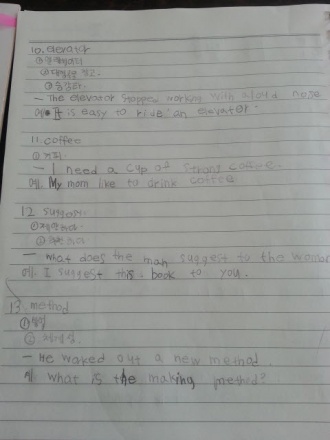 10. elevator
① 엘리베이터
②
③
- The elevator stopped working with a loud noise
예 It is easy to ride an elevator.
11. coffee
① 커피
- I need a cup of strong coffee.
예. My mom like to drink coffee
12 suggest.
① 제안하다.
②
- what does the man suggest to the woman
예. I suggest this book to you.
13. method
① 방법
②
- He waked out a new method.
예 What is the making method?